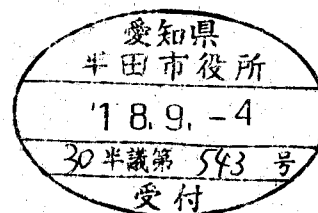 愛知県
半田市役所
'18.9.-4
30半議第 543 号
受付